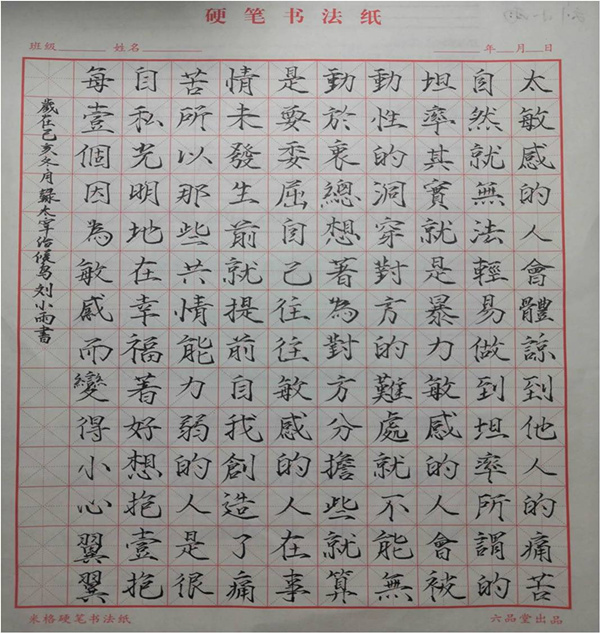 硬笔书法纸
班级 姓名 年 月 日
太敏感的人會體諒到他人的痛苦
自然就無法輕易做到坦率所謂的
坦率其實就是暴力敏感的人會被
動性的洞穿對方的難處就不能無
動於衷總想著為對方分擔些就算
是要委屈自己往往敏感的人在事
情未發生前就提前自我創造了痛
苦所以那些共情能力弱的人是很
自私光明地在幸福著好想抱壹抱
每壹個因為敏感而變得小心翼翼
歲在己亥冬月錄太宰治候鳥刘小雨書
米格硬笔书法纸
六品堂出品